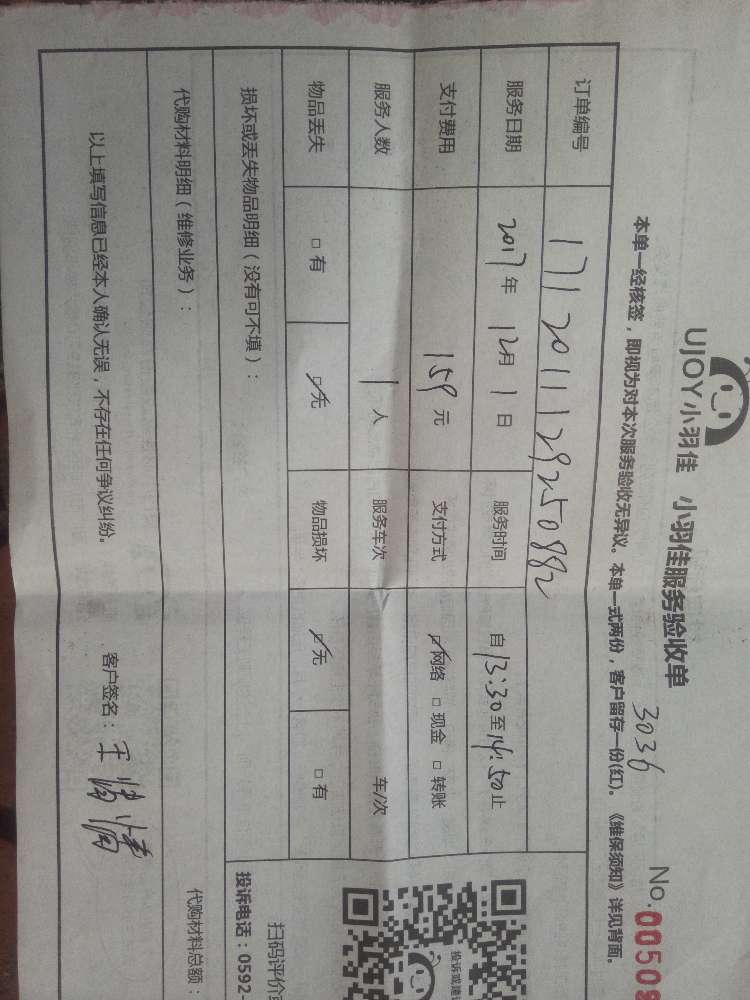 UJOY小羽佳 小羽佳服务验收单
3036
No.00509
本单一经核签，即视为对本次服务验收无异议。本单一式两份，客户留存一份(红)。《维保须知》详见背面。
订单编号 1712011129250882
服务日期 2017年12月1日 服务时间 自13:30至14:50止
支付费用 159元 支付方式 ☑网络 □现金 □转账
服务人数 1人 服务车次 车/次
物品丢失 □有 ☑无 物品损坏 ☑无 □有
损坏或丢失物品明细（没有可不填）：
代购材料明细（维修业务）：
代购材料总额：
以上填写信息已经本人确认无误，不存在任何争议纠纷。
客户签名：
扫码评价
投诉电话：0592-